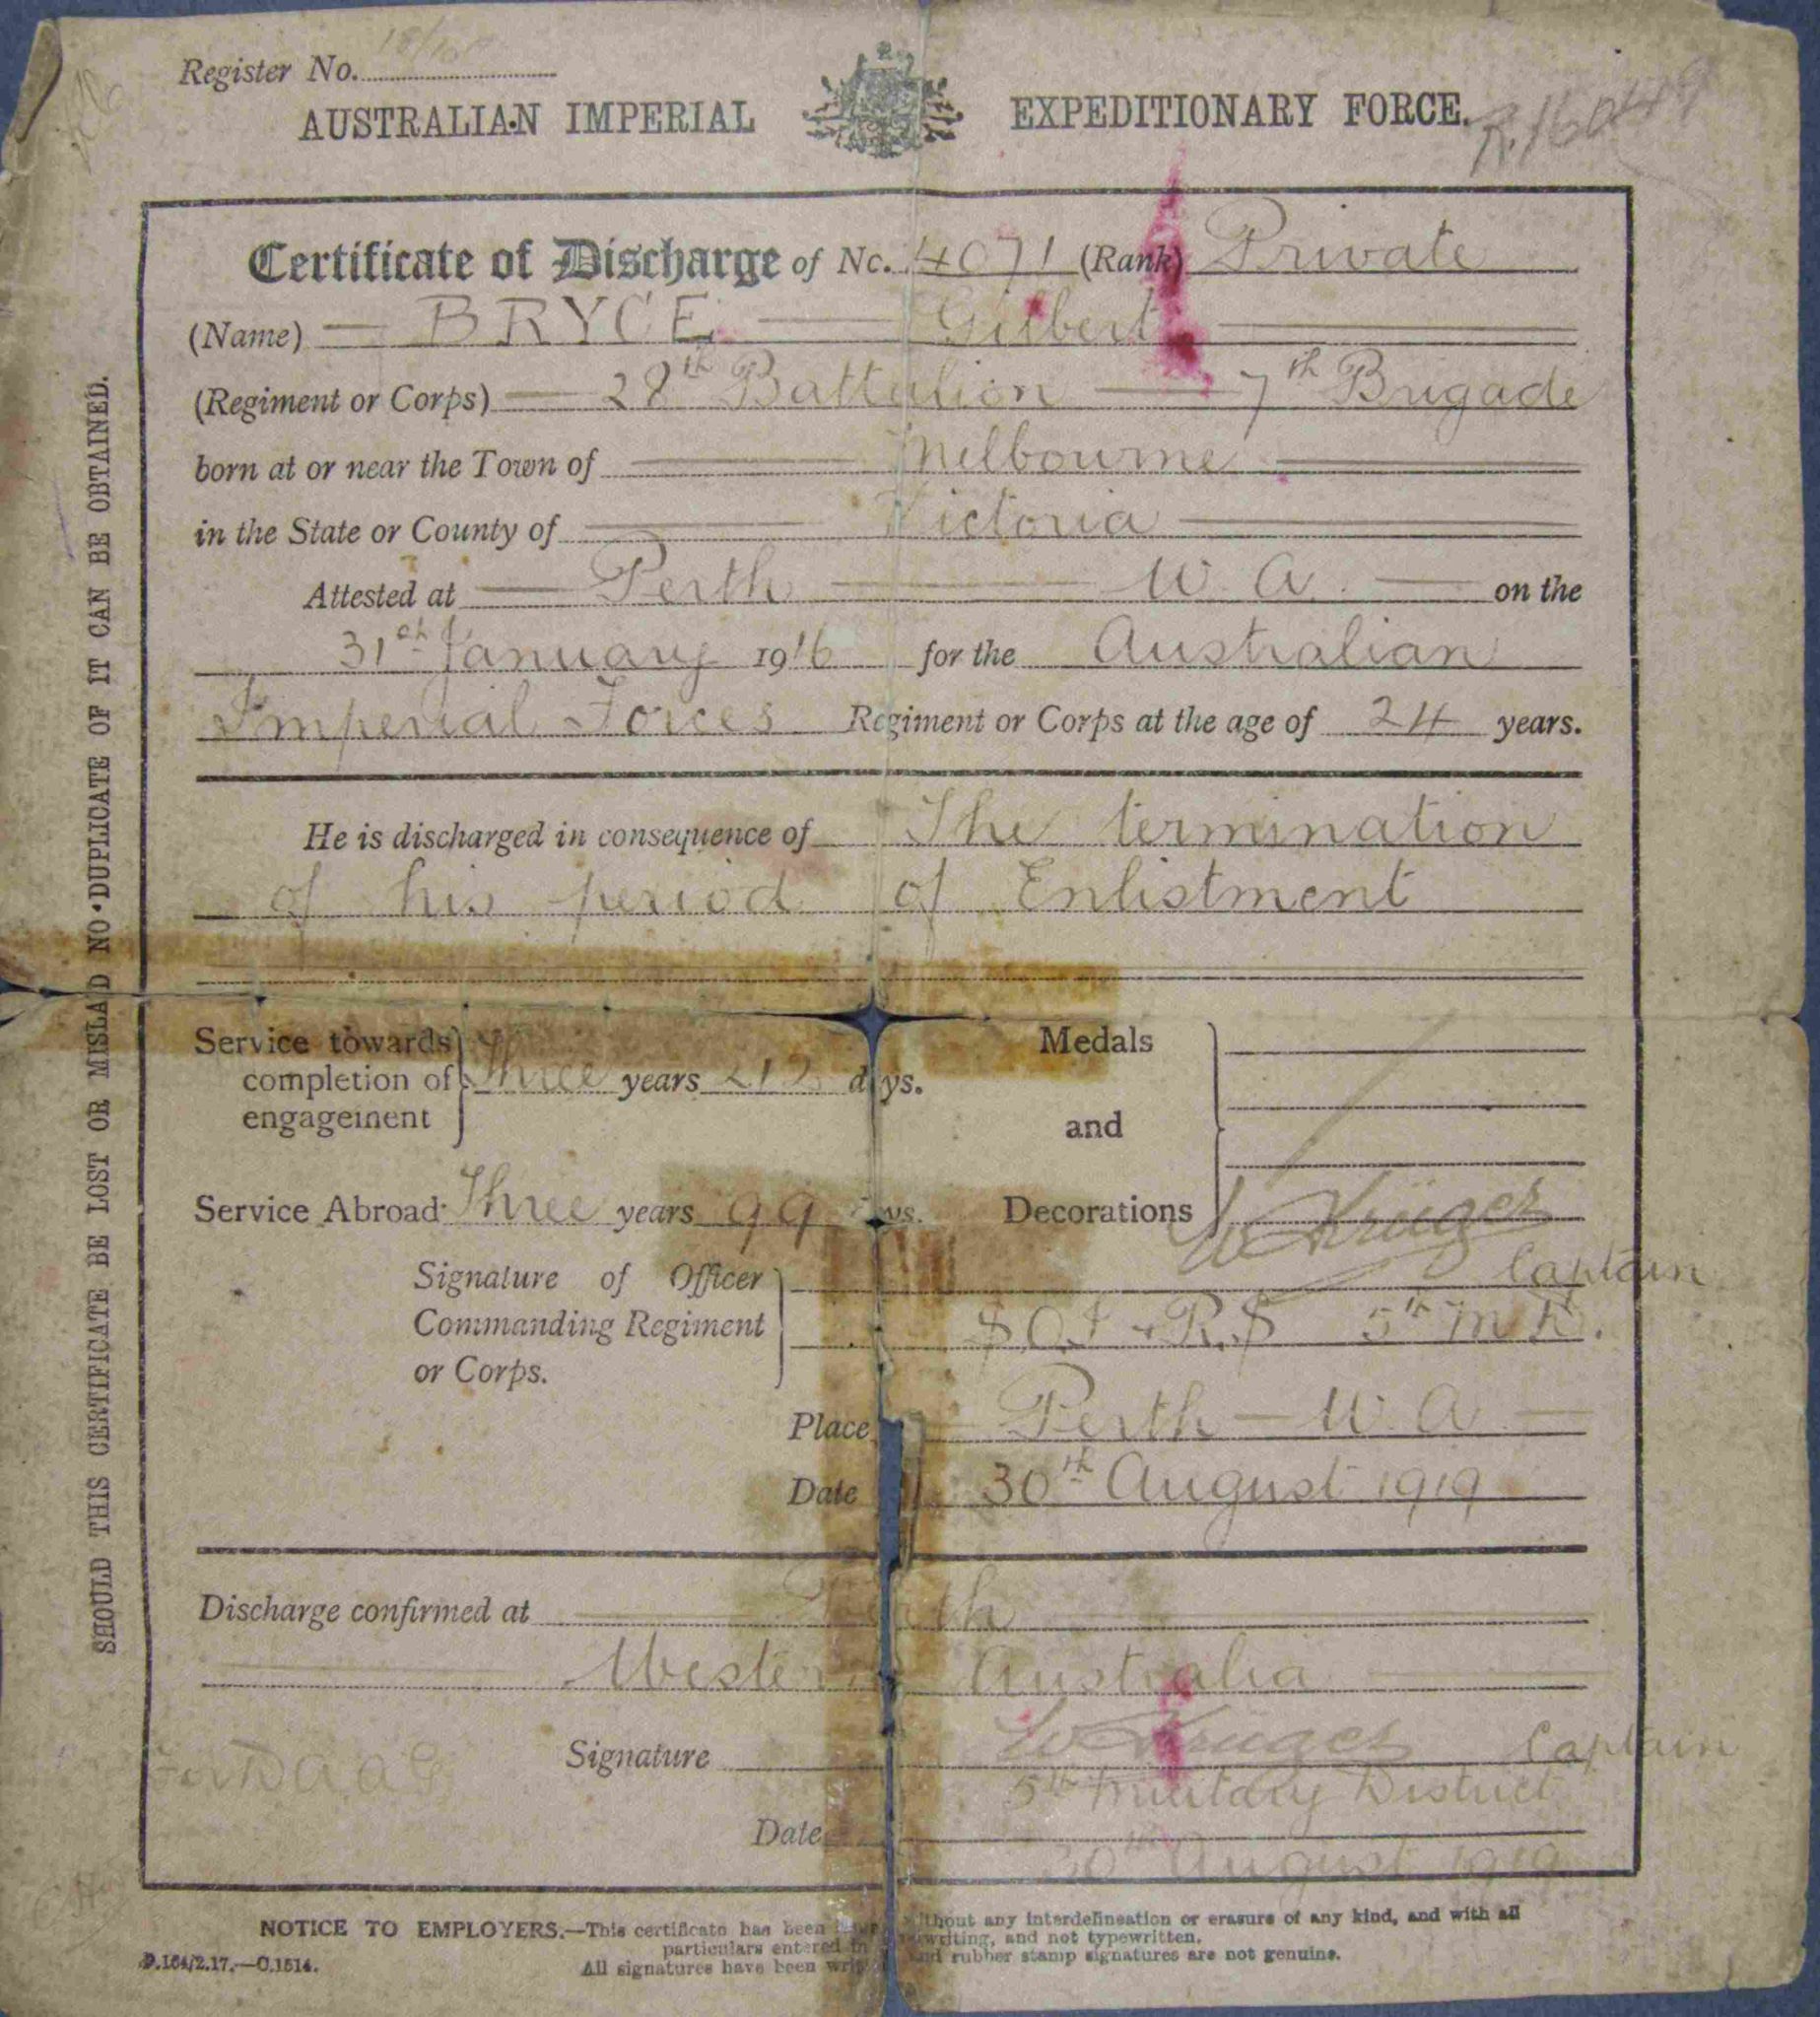 Register No.
AUSTRALIAN IMPERIAL EXPEDITIONARY FORCE.
Certificate of Discharge of No. 4071 (Rank) Private
(Name) BRYCE Gilbert
(Regiment or Corps) 28th Battalion 7th Brigade
born at or near the Town of Melbourne
in the State or County of Victoria
Attested at Perth W. A. on the
31st January 1916 for the Australian
Imperial Forces Regiment or Corps at the age of 24 years.
He is discharged in consequence of The termination
of his period of Enlistment
Service towards completion of engagement Three years 212 days.
Medals and Decorations
Service Abroad Three years 99
Signature of Officer Commanding Regiment or Corps. W Krüger Captain
5th M.D.
Place Perth W. A
Date 30th August 1919
Discharge confirmed at Perth
Western Australia
Signature W Krüger Captain
for D A A G
5th Military District
Date 30th August 1919
NOTICE TO EMPLOYERS.—This certificate has been without any interdelineation or erasure of any kind, and with all
particulars entered in writing, and not typewritten.
All signatures have been and rubber stamp signatures are not genuine.
D.164/2.17.—C.1514.
SHOULD THIS CERTIFICATE BE LOST OR MISLAID NO DUPLICATE OF IT CAN BE OBTAINED.